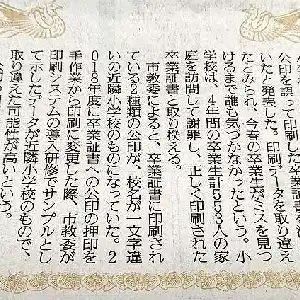 公印を誤って印刷した卒業証書を渡して
いたと発表した。印刷データを取り違え
たとみられ、今春の卒業生がミスを見つ
けるまで誰も気づかなかったという。小
学校は、4年間の卒業生計553人の家
庭を訪問して謝罪し、正しく印刷された
卒業証書と取り換える。
市教委によると、卒業証書に印刷され
ている2種類の公印が、校名が一文字違
いの近隣小学校のものになっていた。2
018年度に卒業証書への公印の押印を
手作業から印刷に変更した際、市教委が
印刷システムの導入研修でサンプルとし
て示したデータが近隣小学校のもので、
取り違えた可能性が高いという。